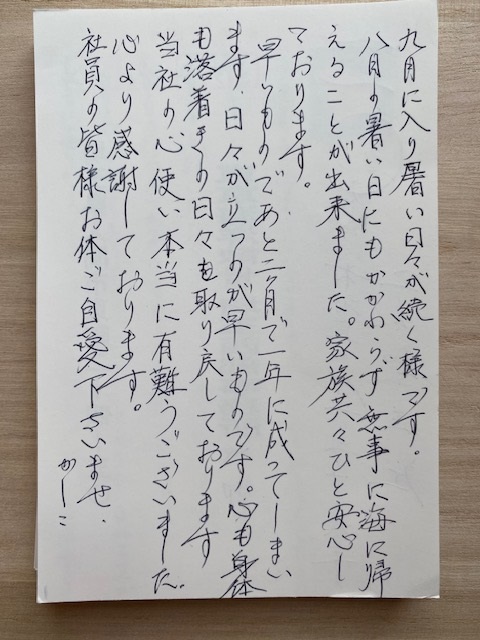 九月に入り暑い日々が続く様です。
八月の暑い日にもかかわらず無事に海に帰
えることが出来ました。家族共々ひと安心し
ております。
早いものであと二ヶ月で一年に成ってしまい
ます、日々が立つのが早いものです。心も身体
も落着きの日々を取り戻しております
当社の心使い本当に有難うございました。
心より感謝しております。
社員の皆様お体ご自愛下さいませ、
かしこ